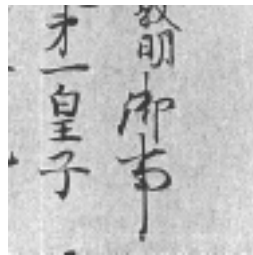 敦明御事
才一皇子